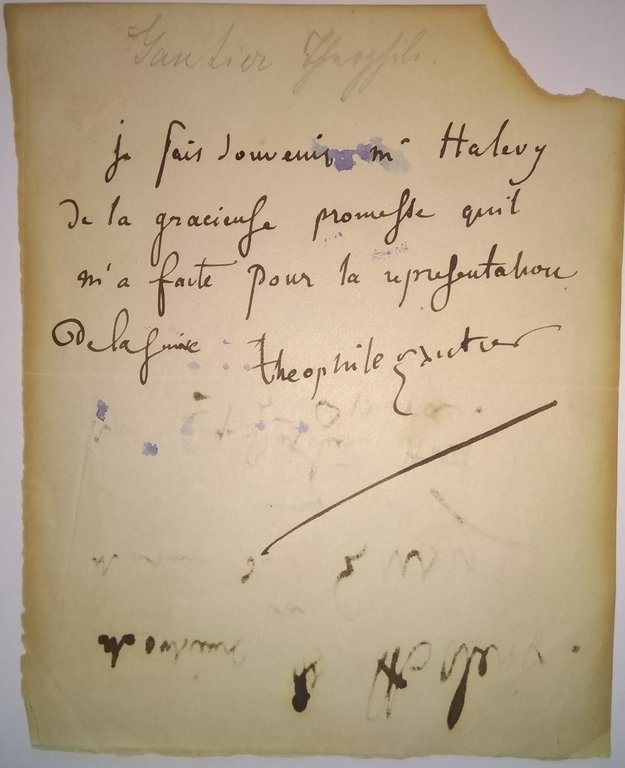 Gautier Theophile.
je fais souvenir mr Halevy
de la gracieuse promesse quil
m'a faite pour la representation
De la juive theophile gautier